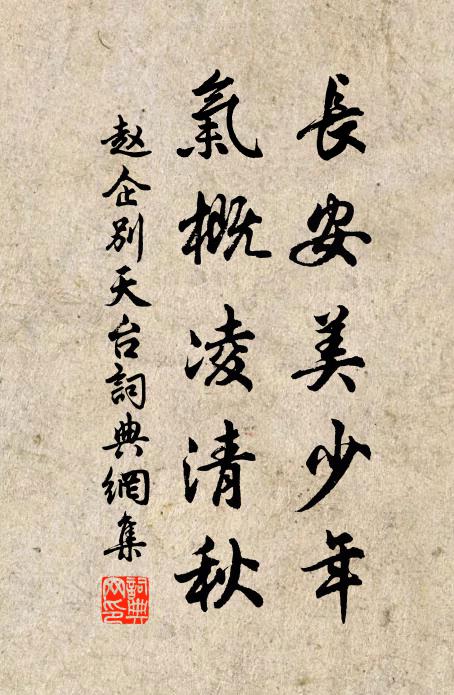 長安美少年
氣概凌清秋
赵企别天台詞典網集
詞典
网印